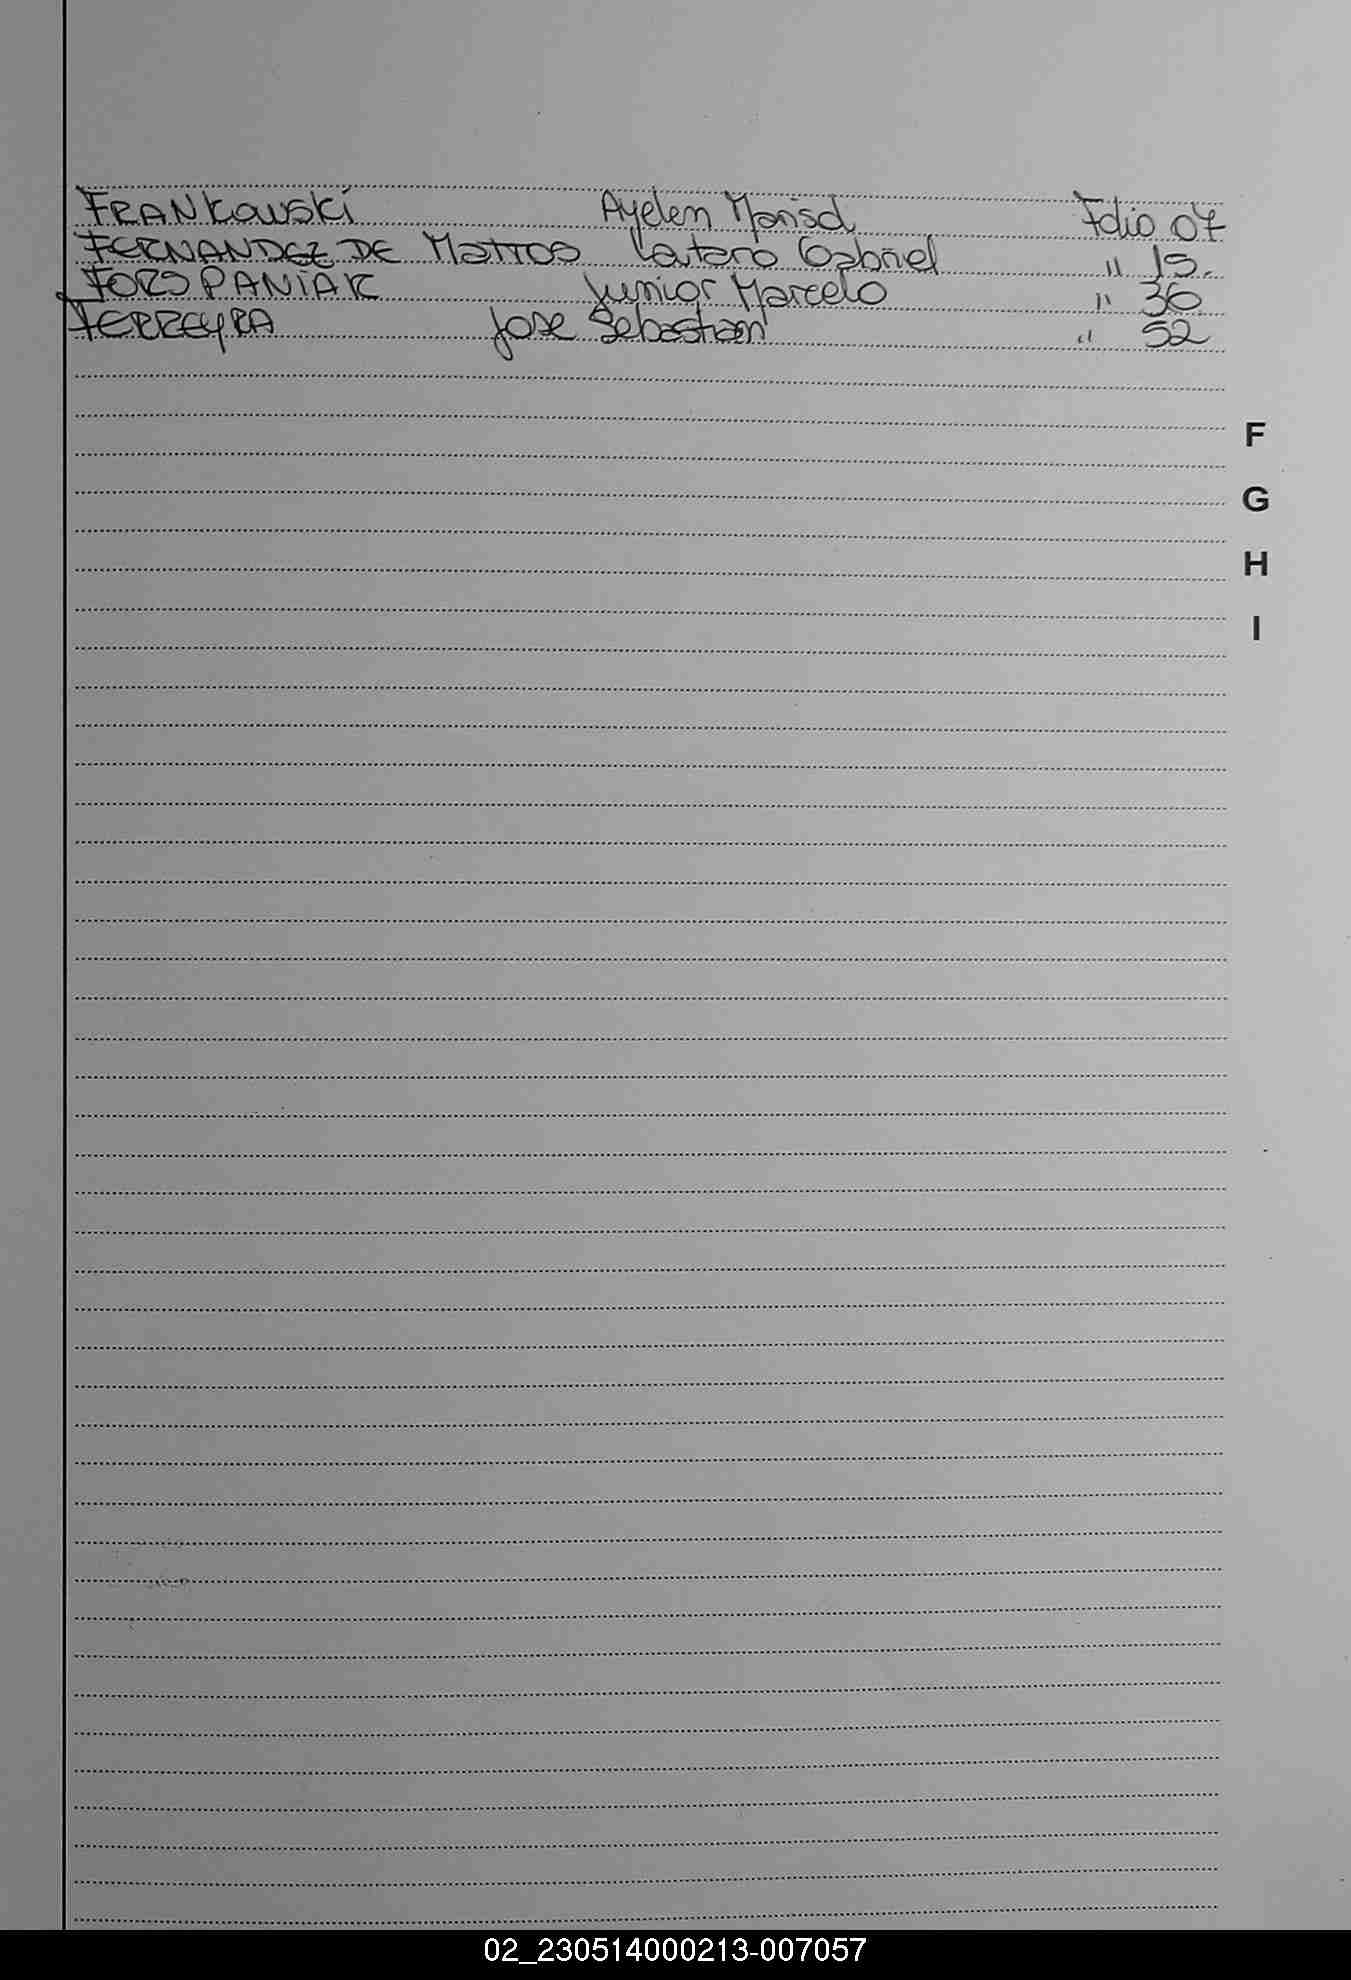 FRANKowski Ayelen Marisol Folio 07
FERNANDEZ DE MATTOS Lautaro Gabriel " 15.
FORSPANIAK Junior Marcelo " 36
FERREYRA Jose Sebastian " 52
F
G
H
I
02_230514000213-007057